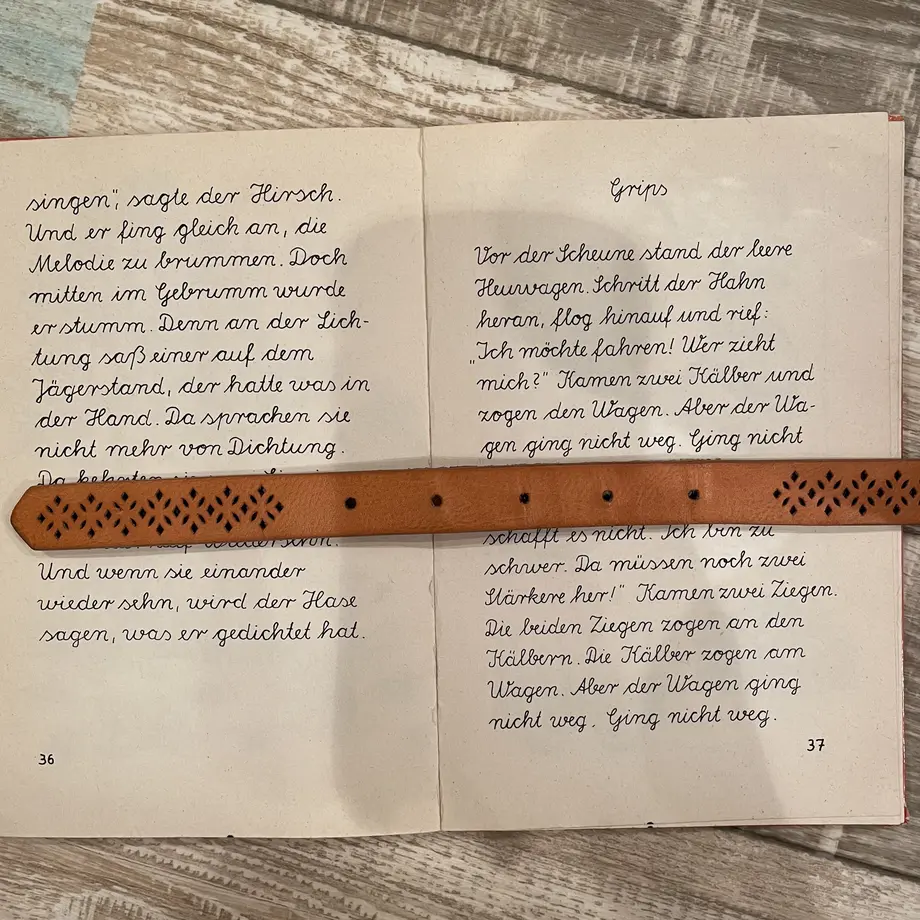 singen", sagte der Hirsch.
Und er fing gleich an, die
Melodie zu brummen. Doch
mitten im Gebrumm wurde
er stumm. Denn an der Lich-
tung saß einer auf dem
Jägerstand, der hatte was in
der Hand. Da sprachen sie
nicht mehr von Dichtung.
Da kehrten
Und wenn sie einander
wieder sehn, wird der Hase
sagen, was er gedichtet hat.
36
Grips
Vor der Scheune stand der leere
Heuwagen. Schritt der Hahn
heran, flog hinauf und rief:
„Ich möchte fahren! Wer zieht
mich?" Kamen zwei Kälber und
zogen den Wagen. Aber der Wa-
gen ging nicht weg. Ging nicht
schafft es nicht. Ich bin zu
schwer. Da müssen noch zwei
Stärkere her!" Kamen zwei Ziegen.
Die beiden Ziegen zogen an den
Kälbern. Die Kälber zogen am
Wagen. Aber der Wagen ging
nicht weg. Ging nicht weg.
37